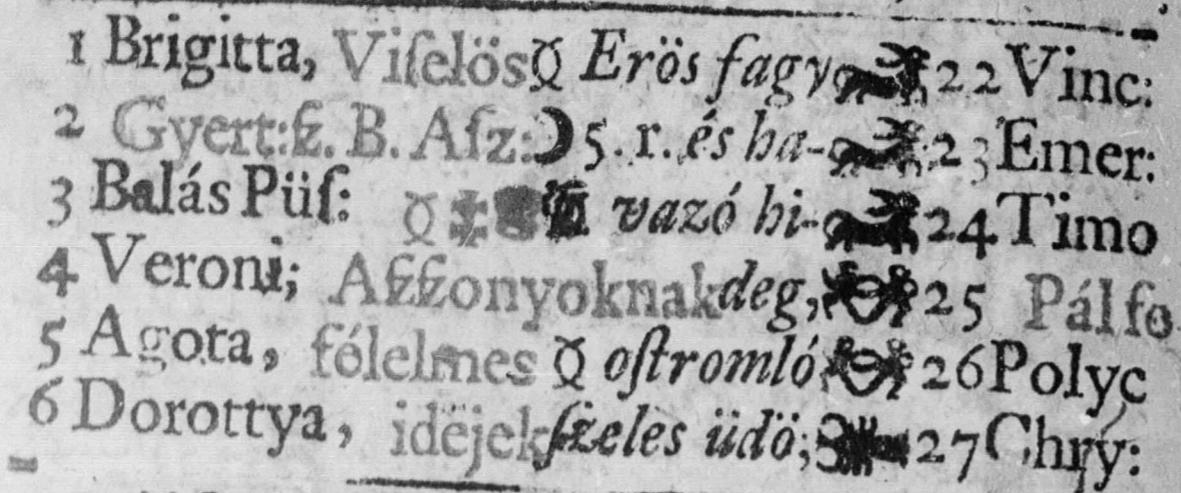 1 Brigitta, Viſelös☿ Erös fagy 22 Vinc:
2 Gyert:ſz. B. Aſz:☽ 5. r. és ha- 23 Emer:
3 Balás Püſ: ☿ vazó hi- 24 Timo
4 Veroni; Aſzſzonyoknak deg, 25 Pál fo
5 Agota, félelmes ☿ oſtromló 26 Polyc
6 Dorottya, idëjek ſzeles üdö; 27 Chry: